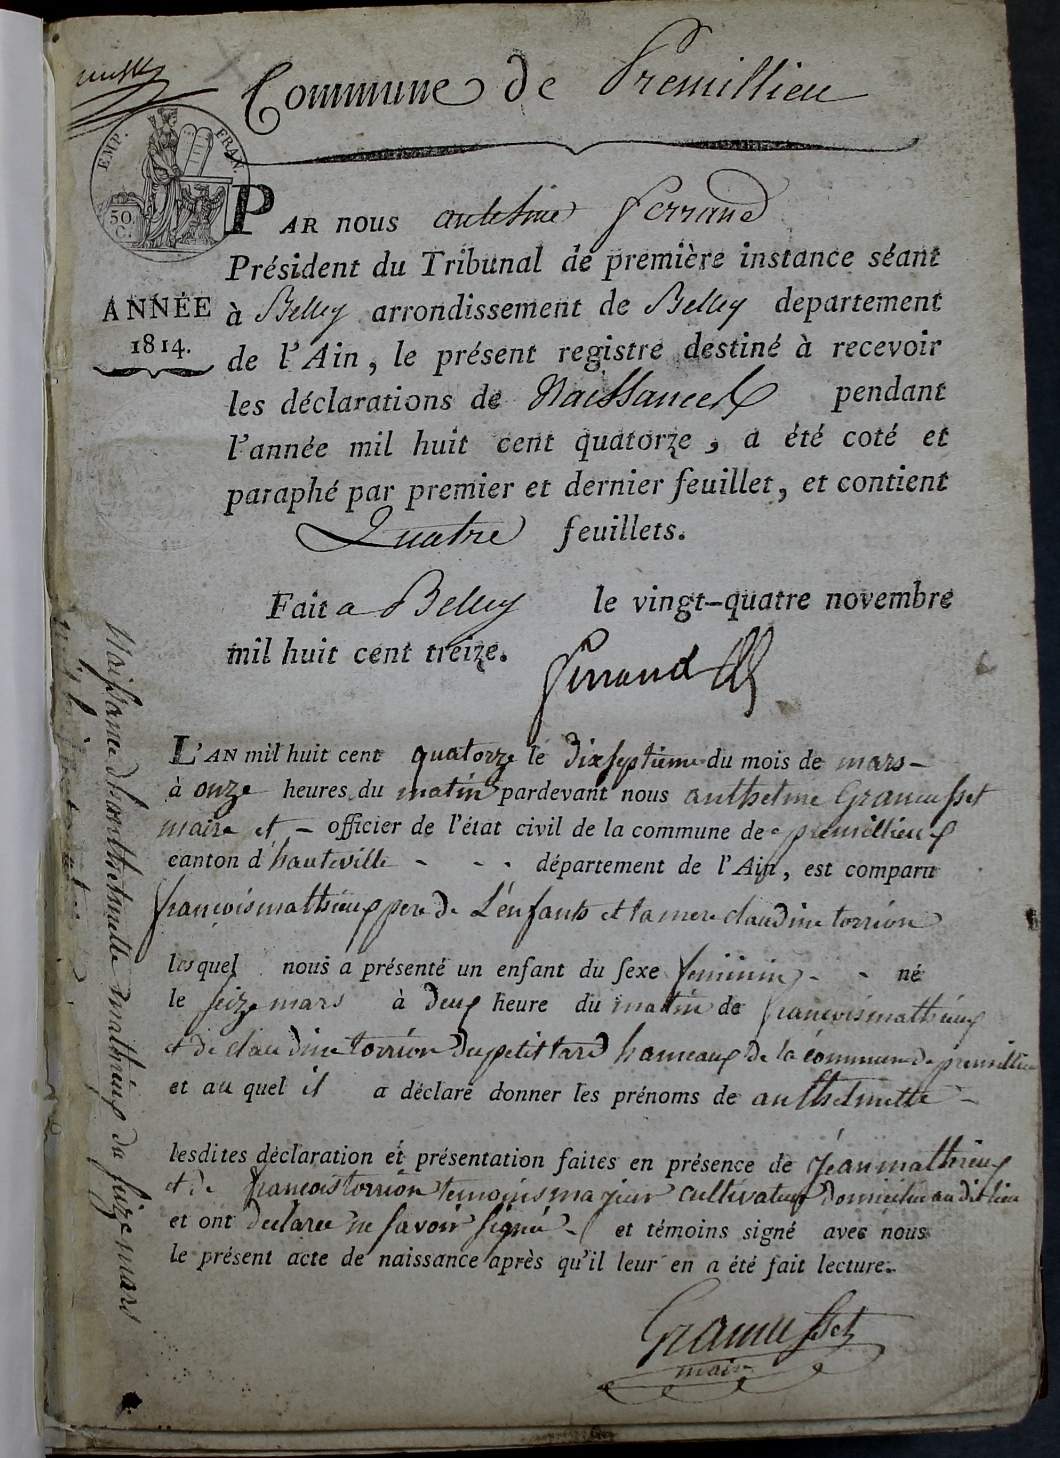 Commune de Premillieu
EMP. FRAN.
50
C.
PAR nous antelme ferrand
Président du Tribunal de première instance séant
ANNÉE
1814.
à Belley arrondissement de Belley departement
de l'Ain, le présent registre destiné à recevoir
les déclarations de Naissances pendant
l'année mil huit cent quatorze, a été coté et
paraphé par premier et dernier feuillet, et contient
Quatre feuillets.
Fait a Belley le vingt-quatre novembre
mil huit cent treize.
ferrand
L'AN mil huit cent quatorze le dixseptieme du mois de mars
à onze heures du matin pardevant nous anthelme Gramusset
maire et officier de l'état civil de la commune de premillieux
canton d'hauteville département de l'Ain, est comparu
francois mathieux pere de L'enfants et la mere claudine torrion
lesquel nous a présenté un enfant du sexe feminin né
le seize mars à deux heure du matin de francois mathieux
et de claudine torrion du petit tard hameaux de la commune de premillieu
et au quel il a déclaré donner les prénoms de anthelmette
lesdites déclaration et présentation faites en présence de jean mathieux
et de francois torrion temoins majeur cultivateur domicilie au dit lieu
et ont declaree ne savoir signé et témoins signé avec nous
le présent acte de naissance après qu'il leur en a été fait lecture.
Gramusset
maire
Naissance d'anthelmette mathieux du seize mars